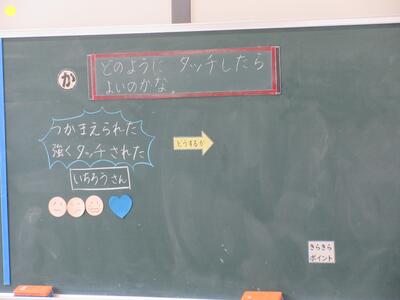 か
どのように タッチしたら
よいのかな。
つかまえられた
強くタッチされた
いちろうさん
どうするか
きらきら
ポイント